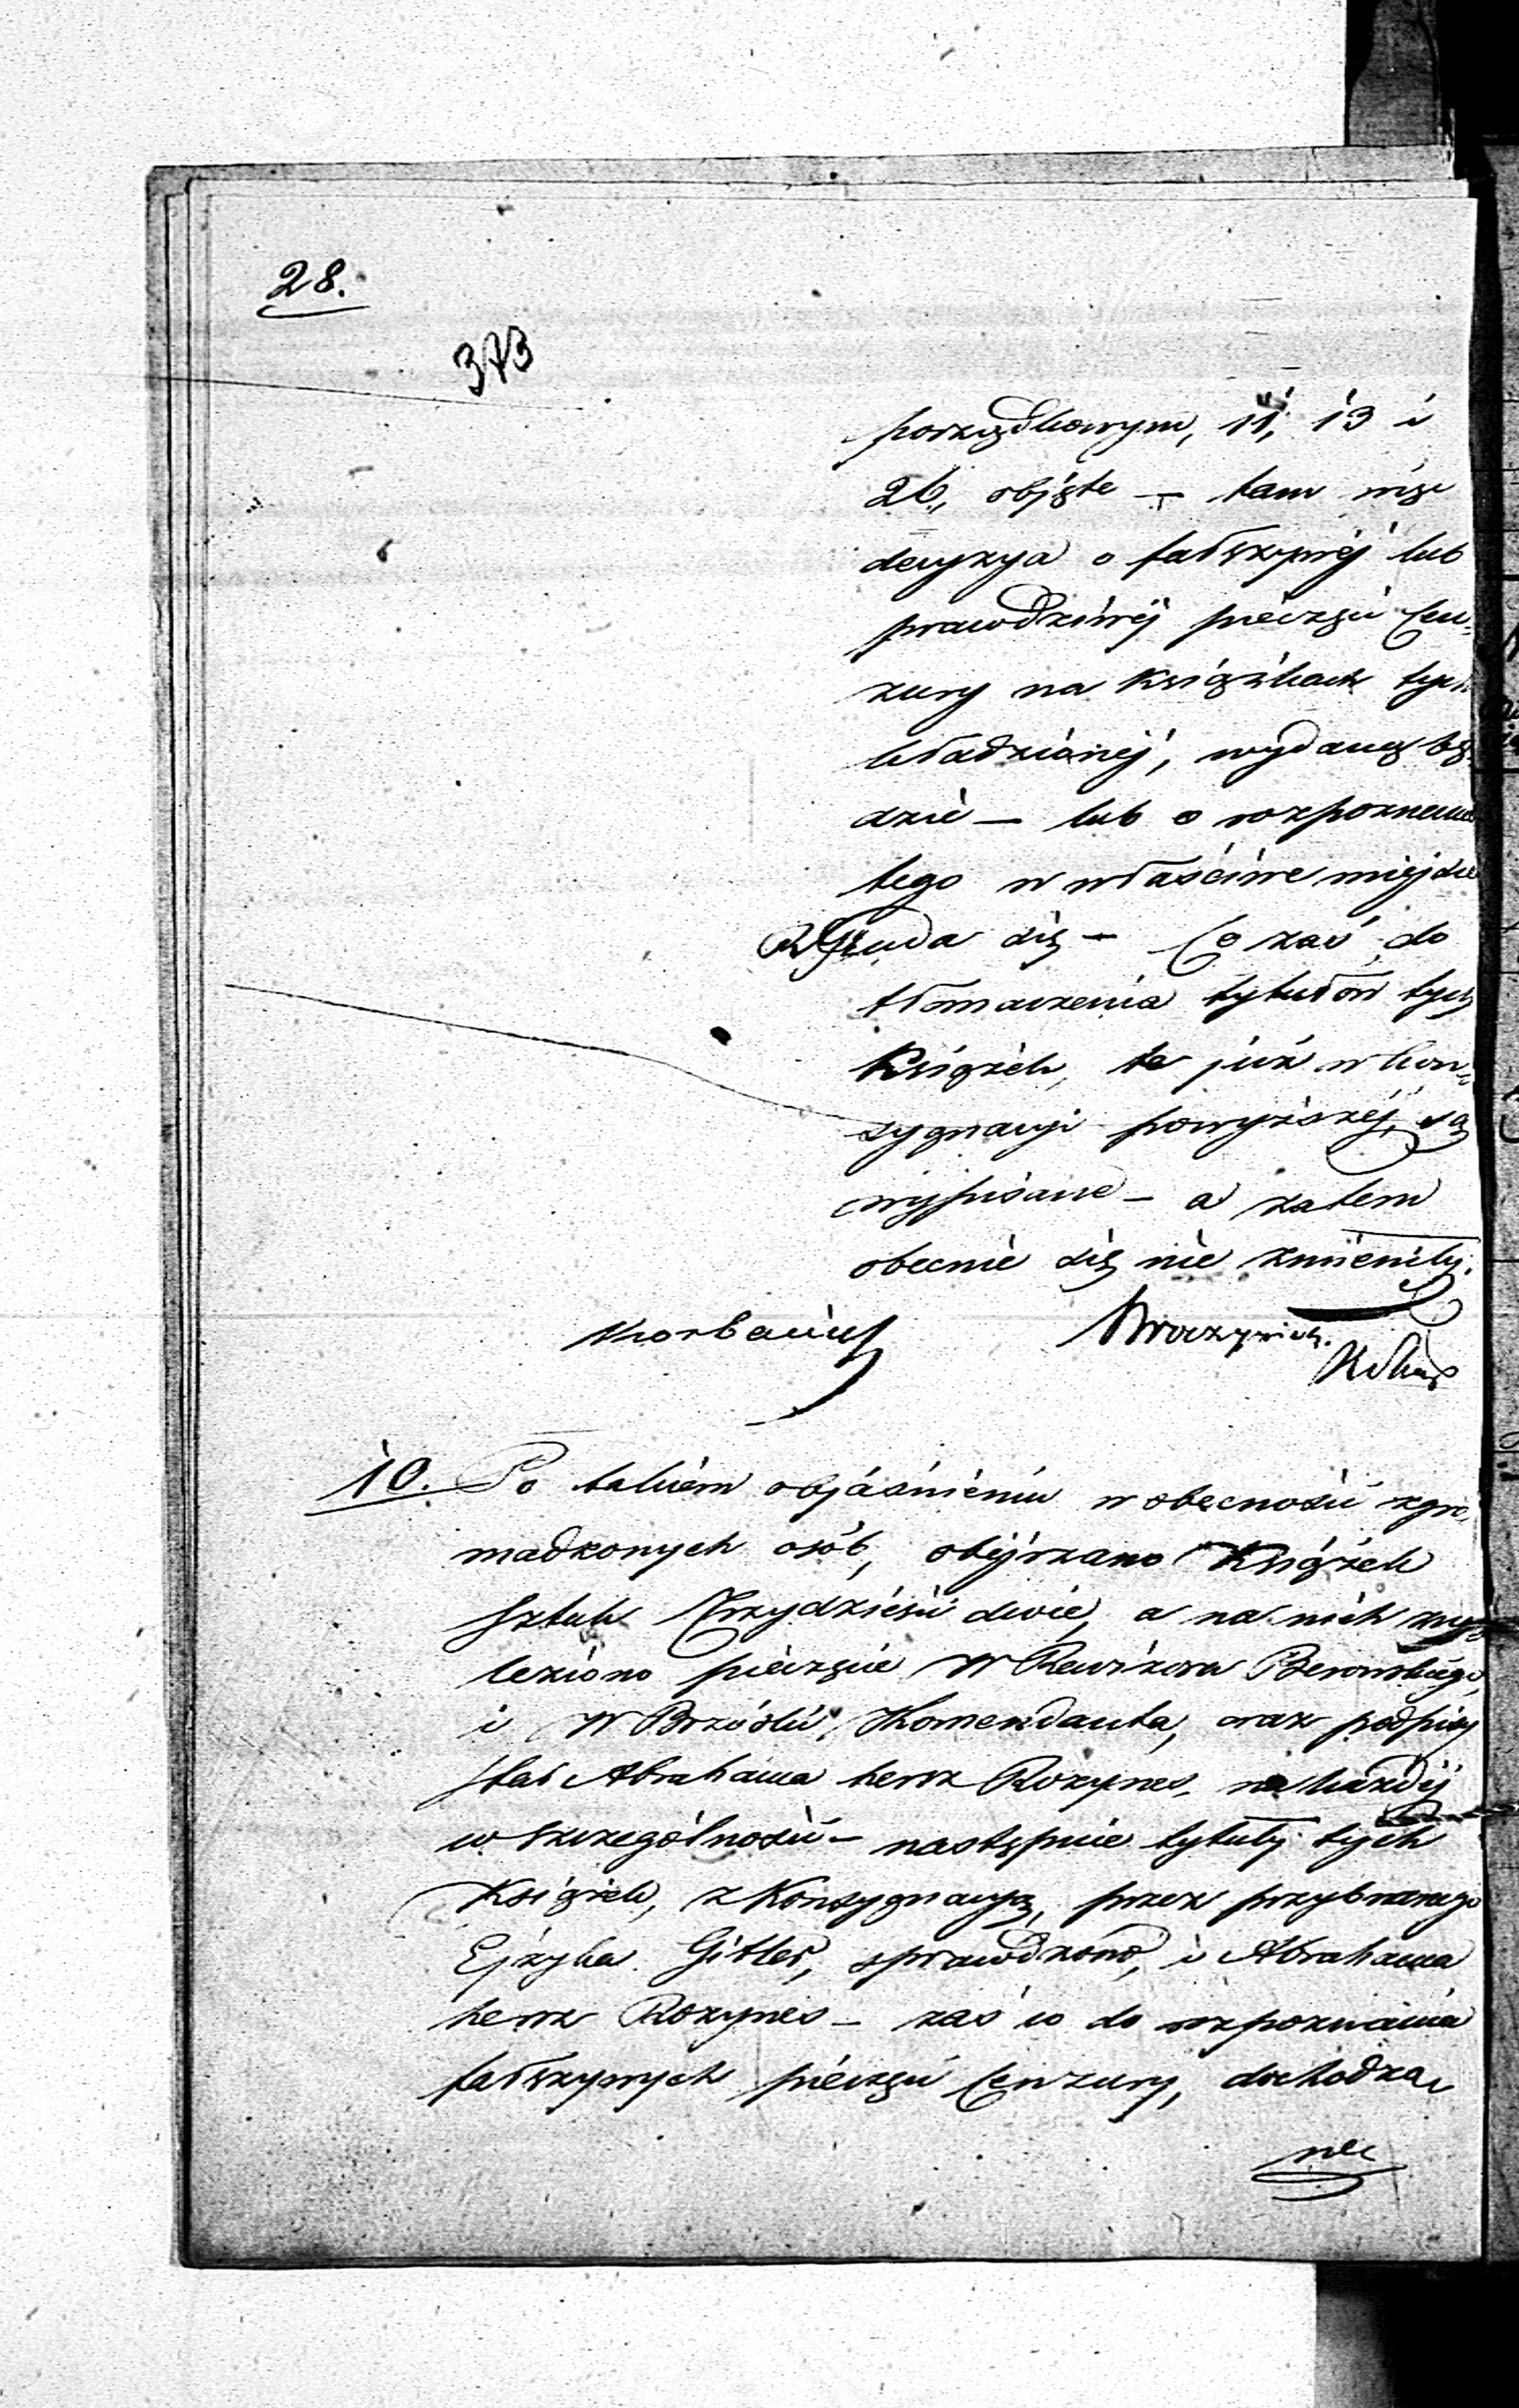 28.
373
porządkowym, 11, 13 i
26, objęte — tam więc
decyzya o fałszywéj lub
prawdziwéj pieczęci Cen-
zury na Książkach tych
kładzionéj, wydaną bę-
dzie — lub o rozpoznanie
tego w właściwe miejsce
uda się — Co zaś do
tłomaczenia tytułów tych
Książek, te już w kon-
sygnacyi powyższéj, są
wypisane — a zatem
obecnie się nie zmieniły.
10. Po takiém objaśnieniu w obecności zgro-
madzonych osób, obéjrzano Książek
sztuk Trzydzieści dwie, a na nich zna-
leziono pieczęcie W Rewizora
i W Komendanta, oraz podpisy
Star Abrahama hersz Rozynes, na każdéj
w szczególności — następnie tytuły tych
Książek, z Konsygnacyą, przez przybranego
Ejzyka Gitler, sprawdzono, i Abrahama
hersz Rozynes — zaś co do rozpoznania
fałszywych pieczęci Cenzury, dochodza-